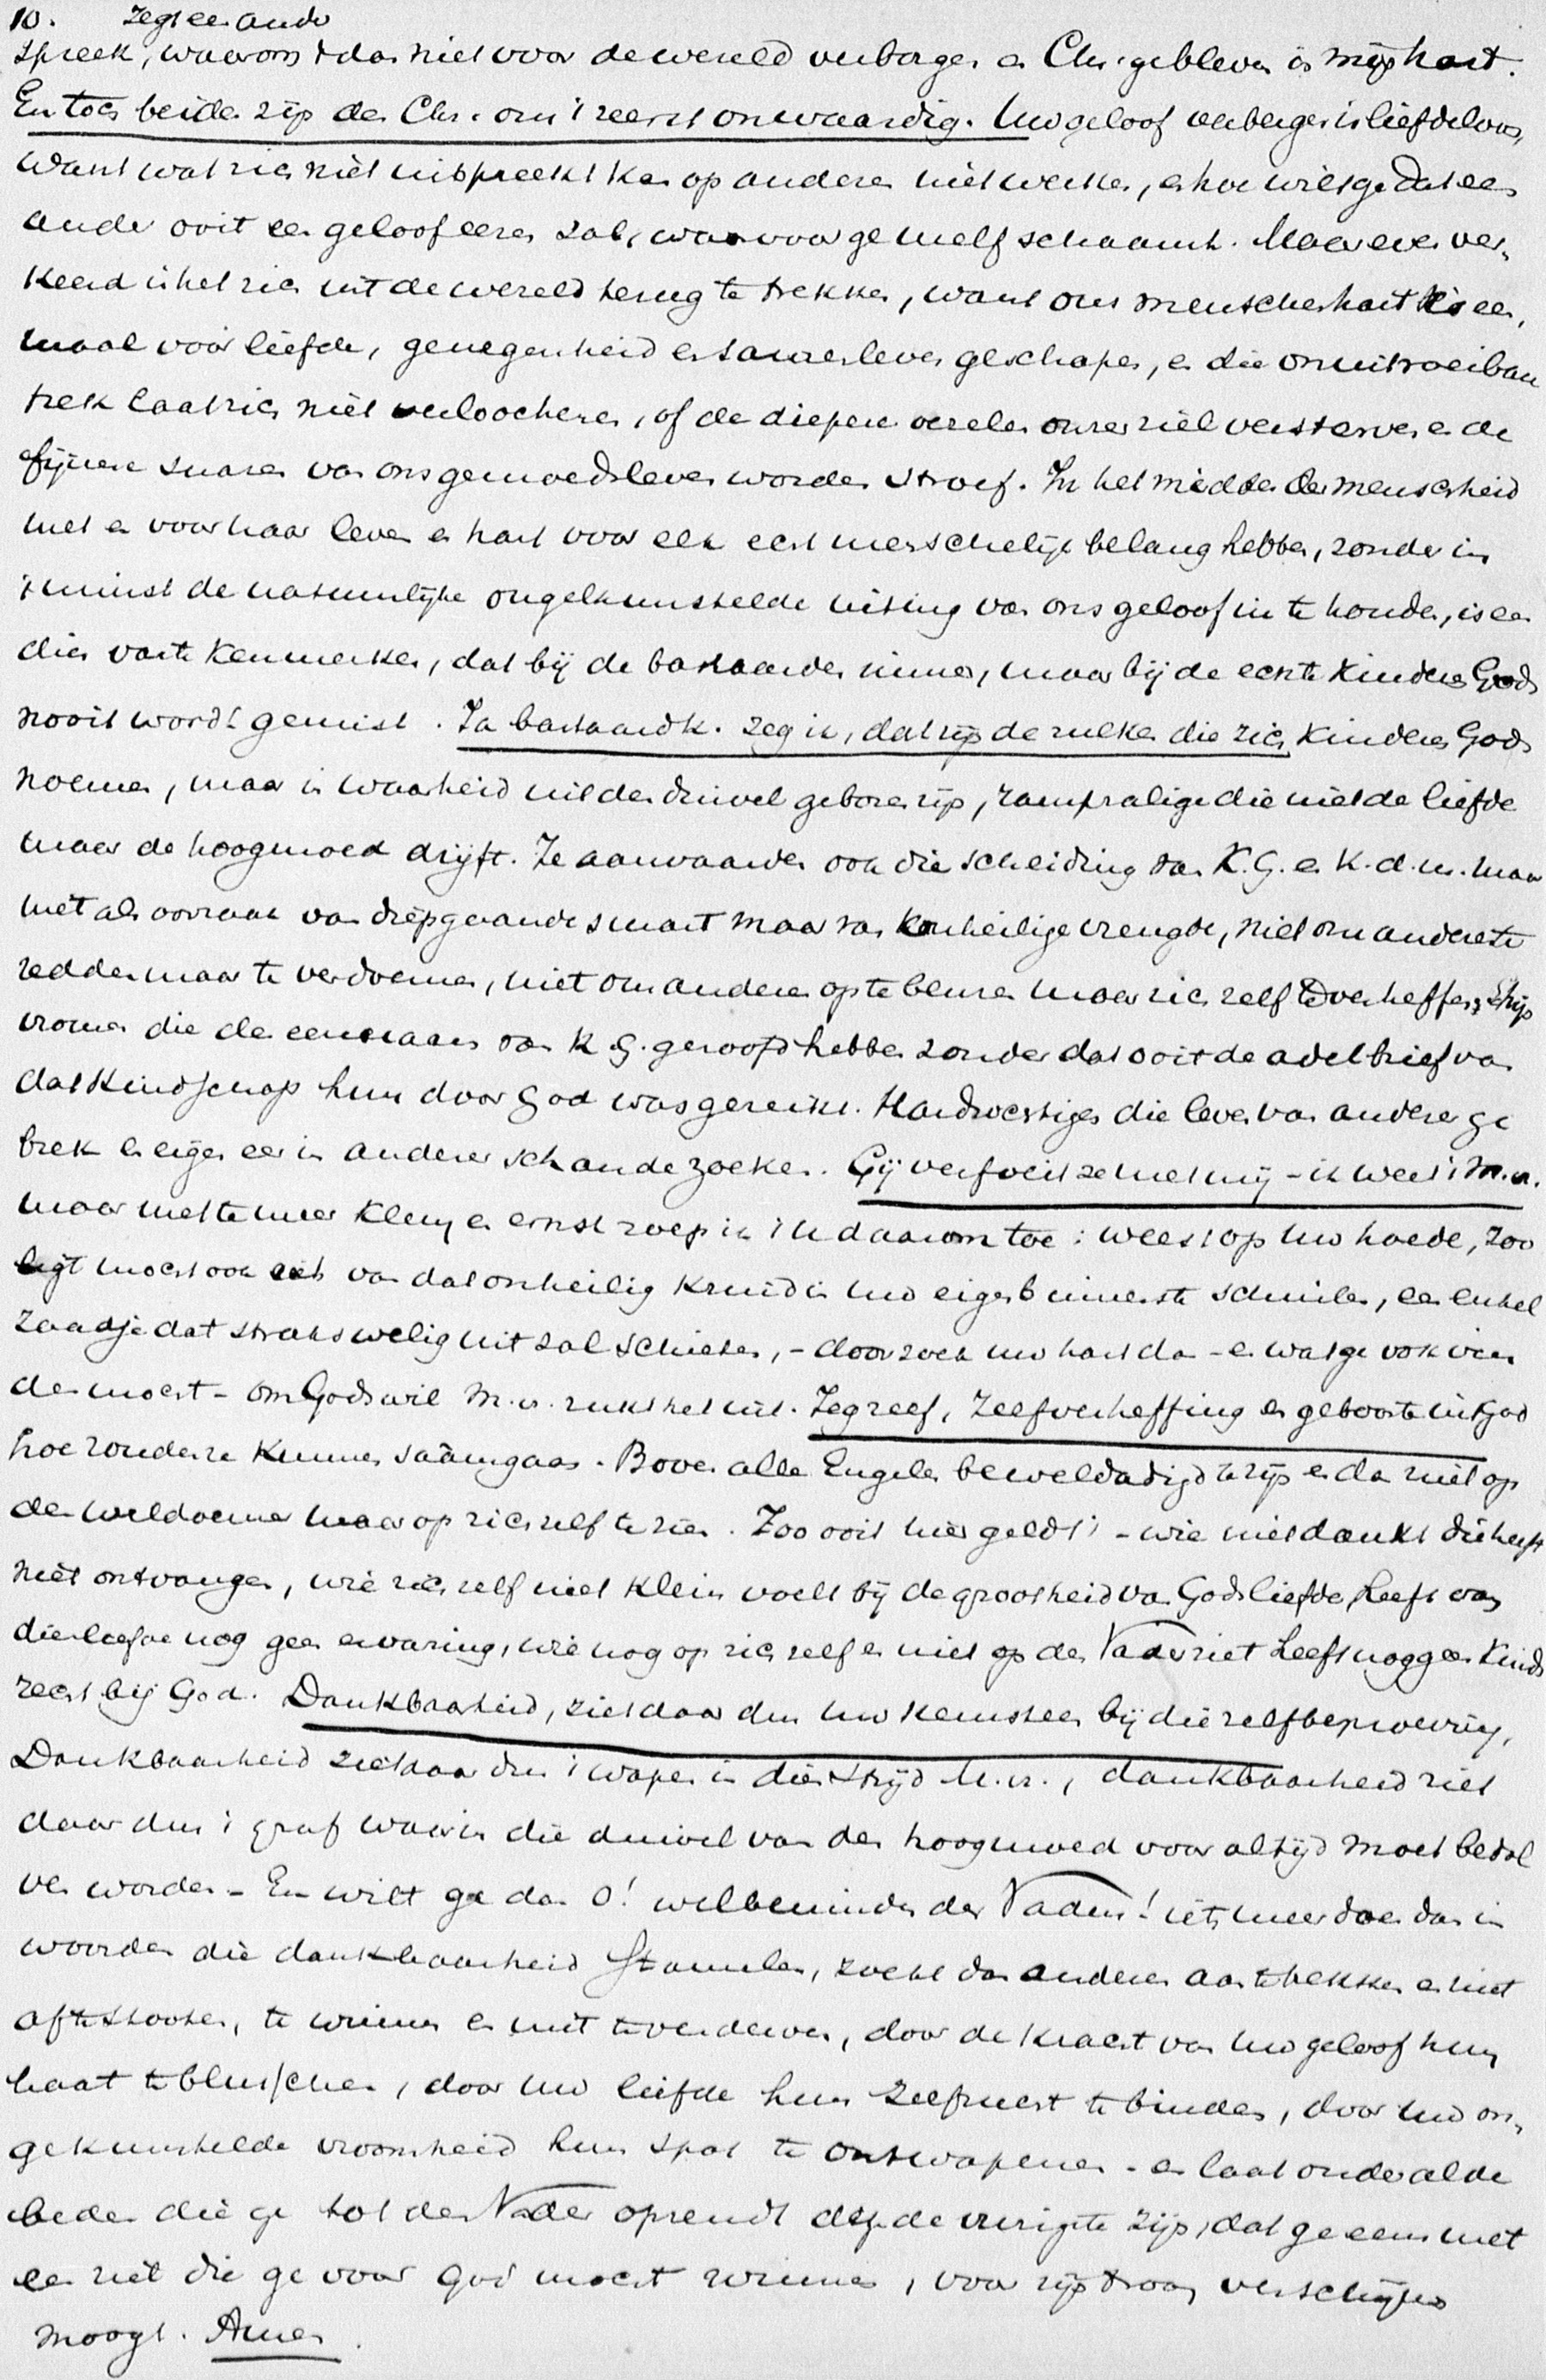 10. zegt een ander
spreek, waarom dan niet voor de wereld verborgen en Chr. gebleven in mijn hart.
En toch beiden zijn den Chr. om 't zeerst onwaardig. Uw geloof verbergen is liefdeloos,
want wat zich niet uitspreekt kan op anderen niet werken, en hoe wilt ge dat een
ander ooit een geloof eeren zal, waarvoor ge u zelf schaamt. Maar even ver-
keerd is het zich uit de wereld terug te trekken, want ons menschenhart is een-
maal voor liefde, genegenheid en samenleven geschapen, en die onuitroeibare
trek laat zich niet verloochenen, of de diepere vezelen onzer ziel versterven en de
fijnere snaren van ons gemoedsleven worden stroef. In het midden der menschheid
met en voor haar leven en hart voor elk echt menschelijk belang hebben, zonder in
't minst de natuurlijke ongekunstelde uiting van ons geloof in te houden, is een
dier vaste kenmerken, dat bij de bastaarden immer, maar bij de echte kinderen Gods
nooit wordt gemist. Ja bastaardk. zeg ik, dat zijn de zulken die zich kinderen Gods
noemen, maar in waarheid uit den duivel geboren zijn, rampzaligen die niet de liefde
maar de hoogmoed drijft. Ze aanvaarden ook die scheiding van K.G. en K.d.w. maar
niet als oorzaak van diepgaande smart maar van onheilige vreugde, niet om anderen te
redden maar te verdoemen, niet om anderen op te beuren maar zich zelf te verheffen,
vromen die den eernaam van K.G. geroofd hebben zonder dat ooit de adelbrief van
dat kindschap hun door God was gereikt. Hardvochtigen die leven van anderer ge
brek en eigen eer in anderer schande zoeken. Gij verfoeit ze met mij - ik weet 't M.V.
maar met te meer klem en ernst roep ik 't u daarom toe: weest op uw hoede, zoo
ligt mocht ook iets van dat onheilig kruid in uw eigen binnenste schuilen, een enkel
zaadje dat straks welig uit zal schieten, - doorzoek uw hart dan - en wat ge ook vin
den mocht - om Gods wil M.V. rukt het uit. Zeg zelf, zelfverheffing en geboorte uit God
hoe zouden ze kunnen saâmgaan. Boven alle Engelen beweldadigd te zijn en dan niet op
den weldoener maar op zich zelf te zien. Zoo ooit hier geldt 't - wie niet dankt die heeft
niet ontvangen, wie zich zelf niet klein voelt bij de grootheid van Gods liefde, heeft van
die liefde nog geen ervaring, wie nog op zich zelf en niet op den Vader ziet heeft nog geen kinds
recht bij God. Dankbaarheid, ziet daar dus uw kenmerk bij die zelfbeproeving,
Dankbaarheid ziet daar dus 't wapen in dien strijd M.V., dankbaarheid ziet
daar dus 't graf waarin die duivel van den hoogmoed voor altijd moet bedol
ven worden - En wilt ge dan o! welbeminden des Vaders! iets meer doen dan in
woorden die dankbaarheid stamelen, zoekt dan anderen aan te trekken en niet
af te stooten, te winnen en niet te verderven, door de kracht van uw geloof hun
haat te blusschen, door uw liefde hun zelfzucht te binden, door uw on-
gekunstelde vroomheid hun spot te ontwapenen - en laat onder al de
beden die ge tot den Vader opzendt deze de vurigste zijn, dat ge eens met
een ziel die ge voor God mocht winnen, voor zijn troon verschijnen
moogt. Amen.